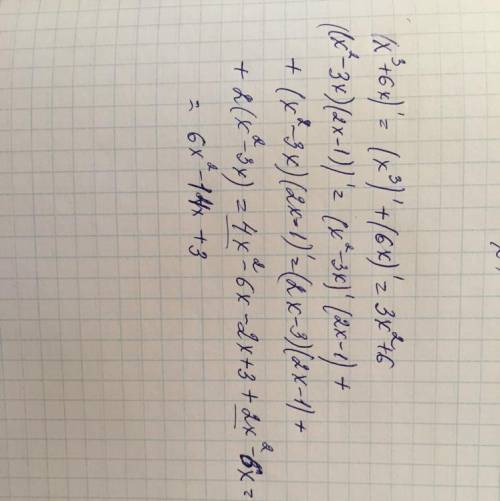 (x³+6x)' = (x³)' + (6x)' = 3x²+6
((x²-3x)(2x-1))' = (x²-3x)' (2x-1) +
+ (x²-3x)(2x-1)' = (2x-3)(2x-1) +
+ 2(x²-3x) = 4x²-6x-2x+3+2x²-6x =
= 6x²-14x+3